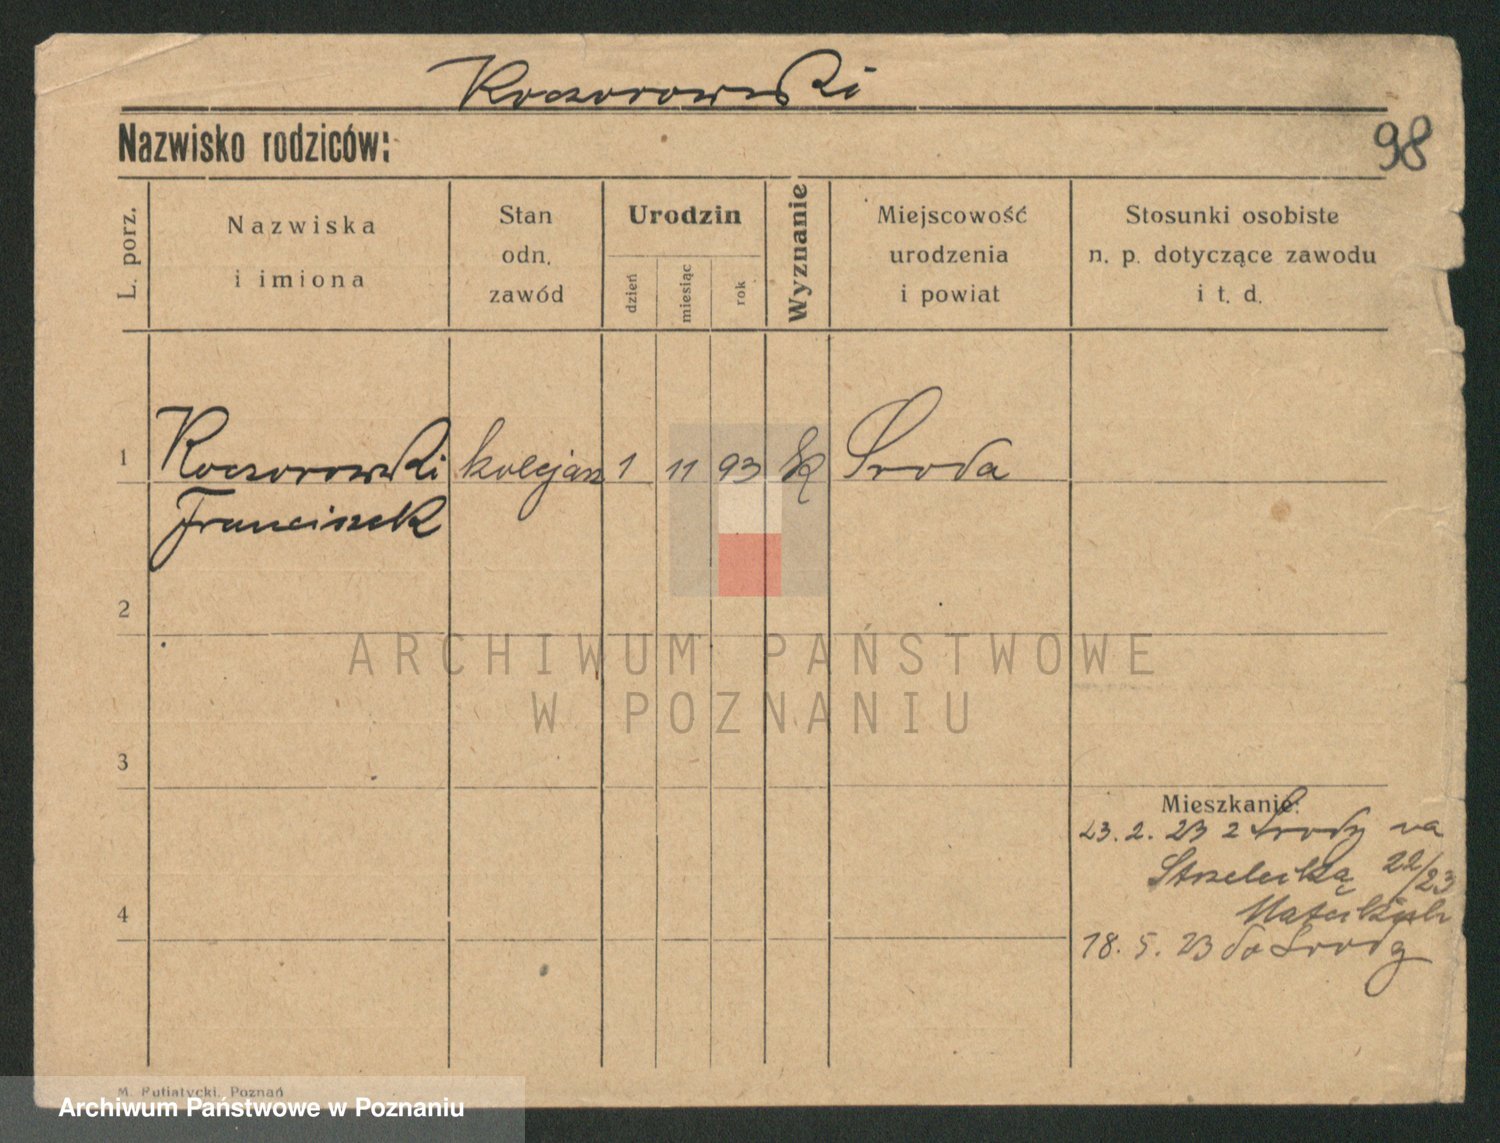 Koczorowski
Nazwisko rodziców:
98
L. porz.
Nazwiska
i imiona
Stan
odn.
zawód
Urodzin
dzień
miesiąc
rok
Wyznanie
Miejscowość
urodzenia
i powiat
Stosunki osobiste
n. p. dotyczące zawodu
i t. d.
1 Koczorowski kolejarz 1 11 93 k Środa
Franciszek
2
3
4
Mieszkanie:
23. 2. 23 z Środy na
Strzelecką 22/23
18. 5. 23 do Środy
ARCHIWUM PAŃSTWOWE
W POZNANIU
M. Putiatycki, Poznań
Archiwum Państwowe w Poznaniu